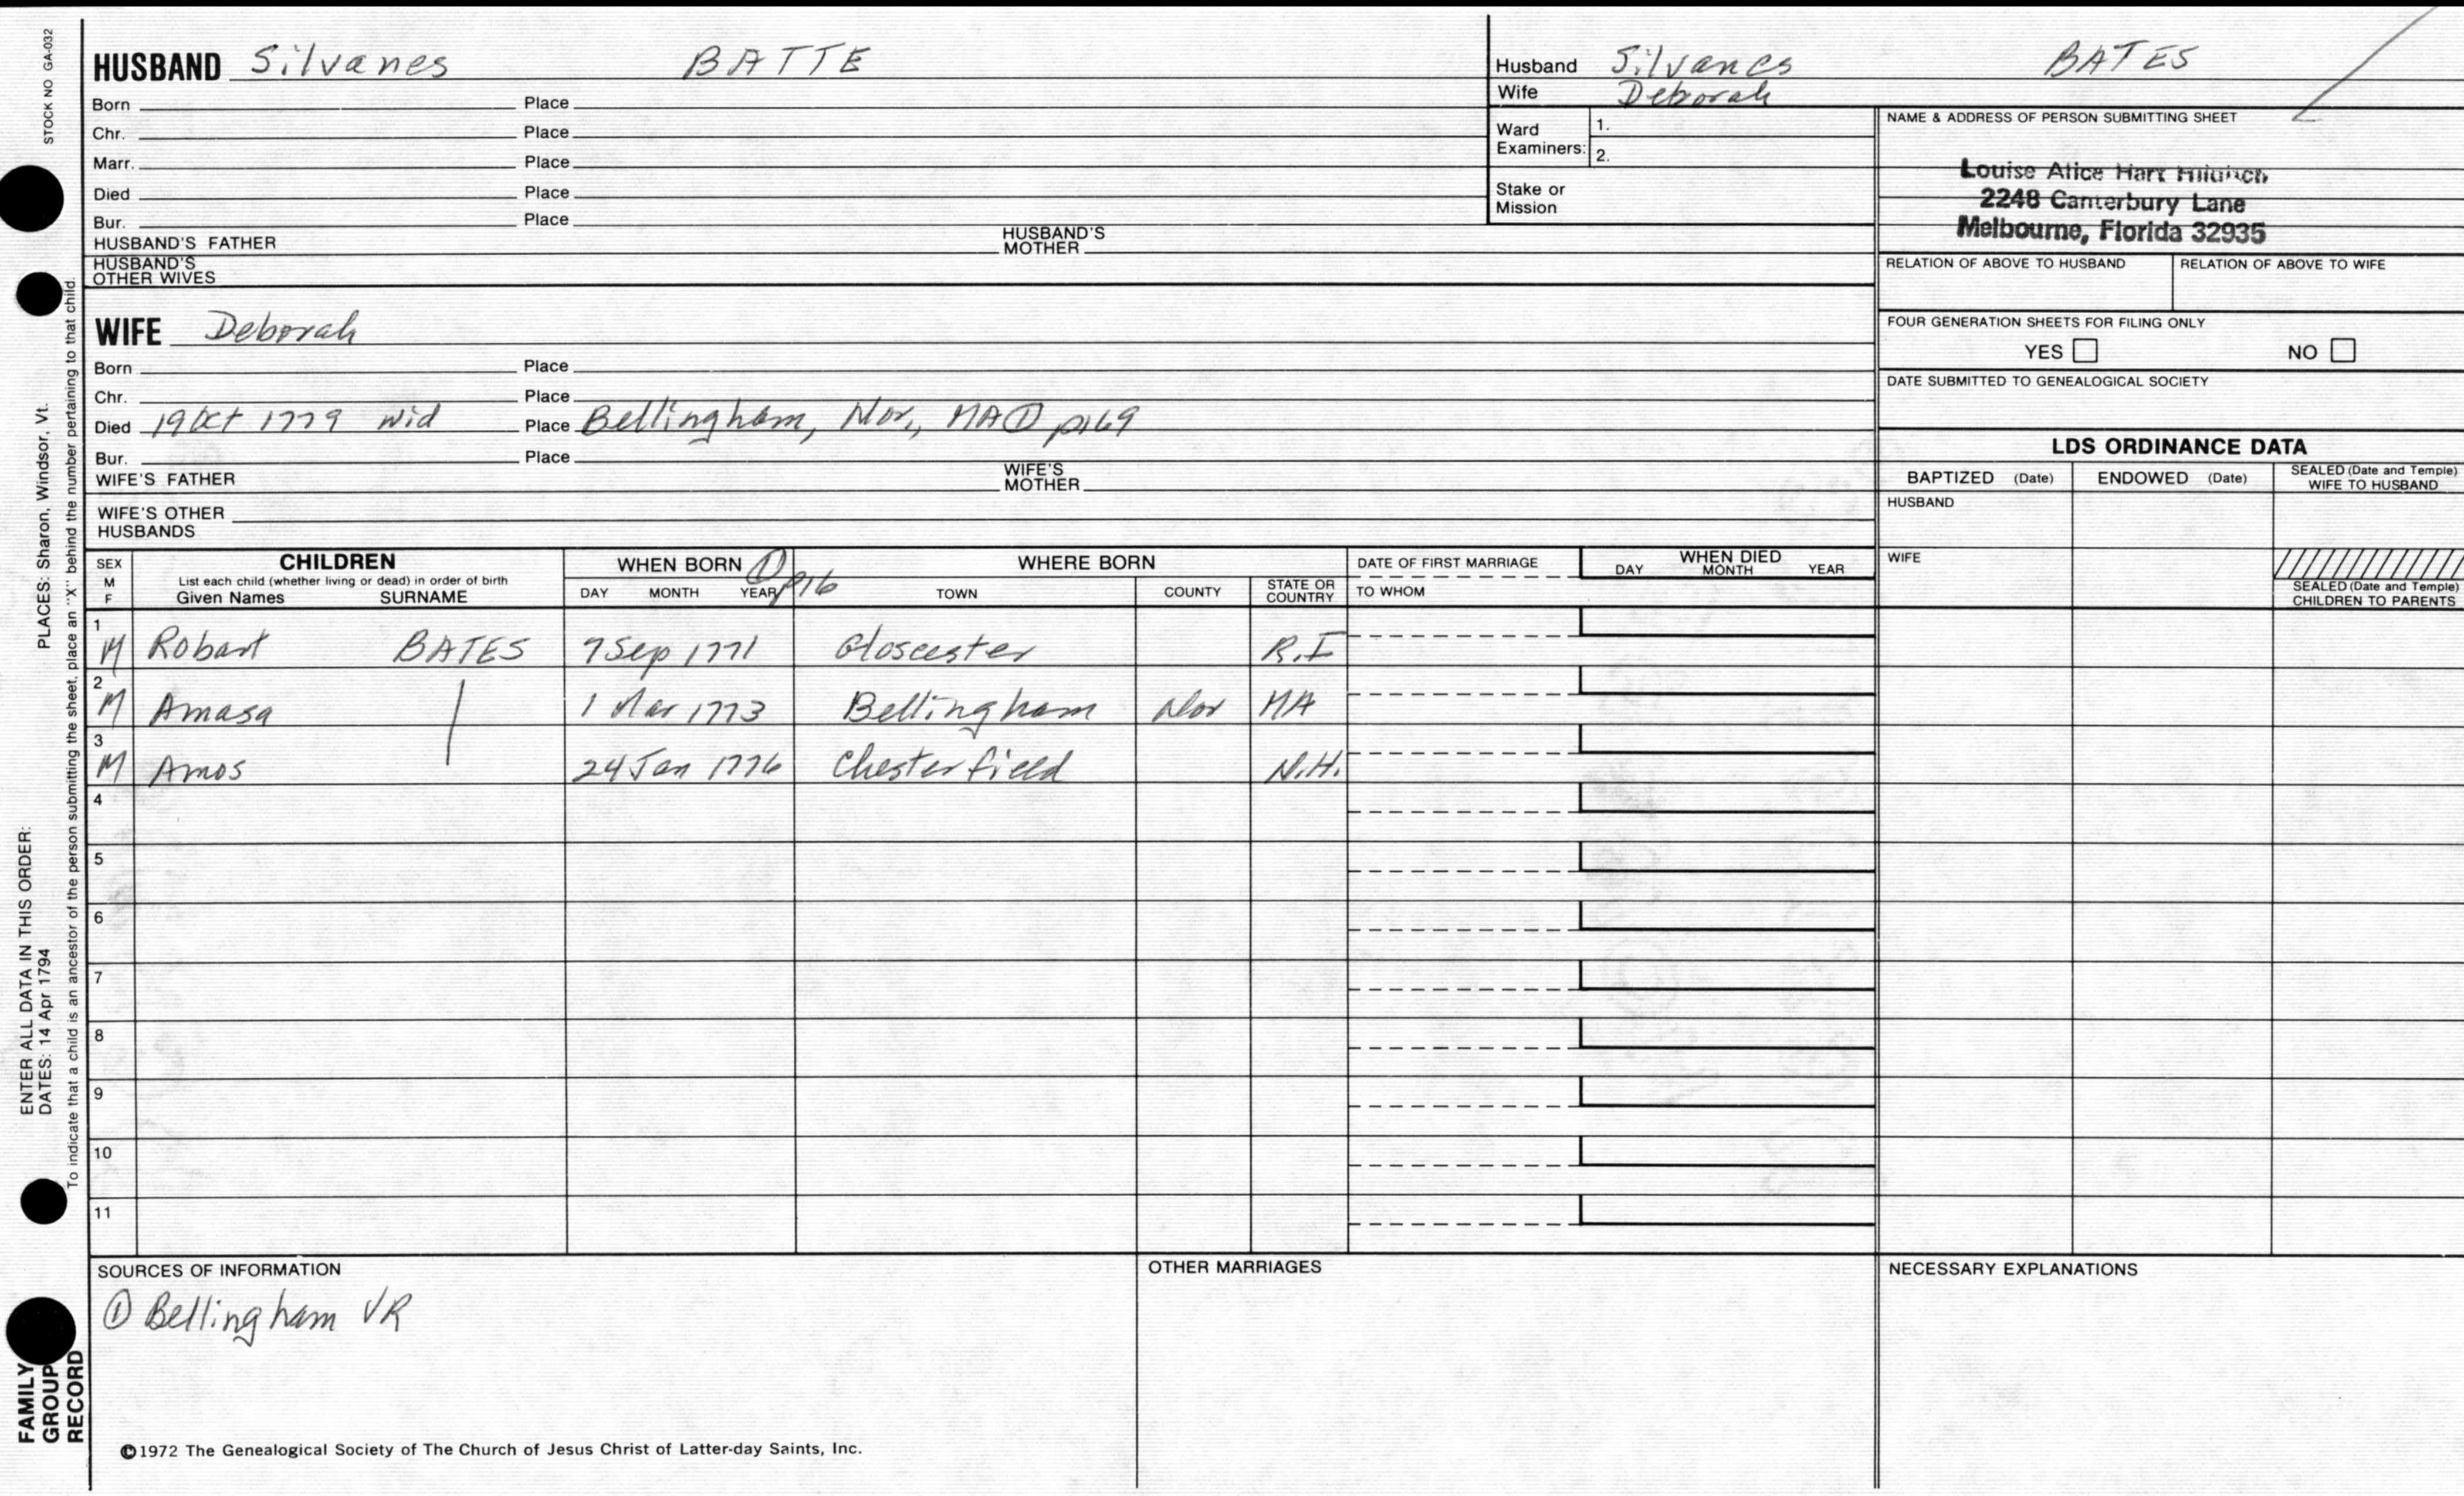 STOCK NO GA-032
HUSBAND Silvanes BATTE
Born Place
Chr. Place
Marr. Place
Died Place
Bur. Place
HUSBAND'S FATHER HUSBAND'S MOTHER
HUSBAND'S OTHER WIVES
WIFE Deborah
Born Place
Chr. Place
Died 19 Oct 1779 wid Place Bellingham, Nor., MA ① p169
Bur. Place
WIFE'S FATHER WIFE'S MOTHER
WIFE'S OTHER HUSBANDS
Husband Silvanes BATES
Wife Deborah
Ward Examiners: 1.
2.
Stake or Mission
NAME & ADDRESS OF PERSON SUBMITTING SHEET
Louise Alice Hart
2248 Canterbury Lane
Melbourne, Florida 32935
RELATION OF ABOVE TO HUSBAND RELATION OF ABOVE TO WIFE
FOUR GENERATION SHEETS FOR FILING ONLY
YES NO
DATE SUBMITTED TO GENEALOGICAL SOCIETY
LDS ORDINANCE DATA
BAPTIZED (Date) ENDOWED (Date) SEALED (Date and Temple) WIFE TO HUSBAND
HUSBAND
WIFE
SEALED (Date and Temple) CHILDREN TO PARENTS
SEX M F
CHILDREN
List each child (whether living or dead) in order of birth
Given Names SURNAME
WHEN BORN ① p16
DAY MONTH YEAR
WHERE BORN
TOWN COUNTY STATE OR COUNTRY
DATE OF FIRST MARRIAGE
TO WHOM
WHEN DIED
DAY MONTH YEAR
1 M Robart BATES 7 Sep 1771 Gloscester R.I
2 M Amasa 1 Mar 1773 Bellingham Nor MA
3 M Amos 24 Jan 1776 Chesterfield N.H.
4
5
6
7
8
9
10
11
SOURCES OF INFORMATION
① Bellingham VR
OTHER MARRIAGES
NECESSARY EXPLANATIONS
©1972 The Genealogical Society of The Church of Jesus Christ of Latter-day Saints, Inc.
ENTER ALL DATA IN THIS ORDER:
DATES: 14 Apr 1794 PLACES: Sharon, Windsor, Vt.
To indicate that a child is an ancestor of the person submitting the sheet, place an "X" behind the number pertaining to that child.
FAMILY
GROUP
RECORD